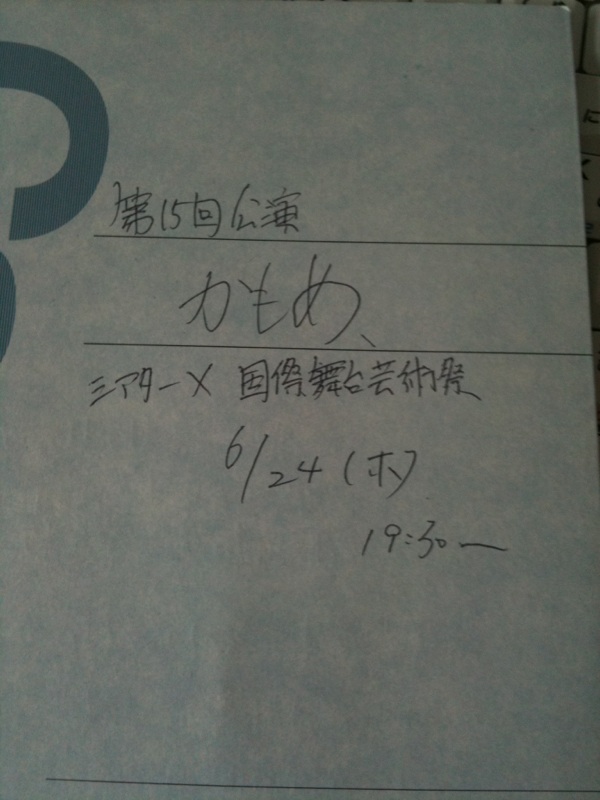 第15回公演
かもめ、
シアターX 国際舞台芸術祭
6/24(木)
19:30〜